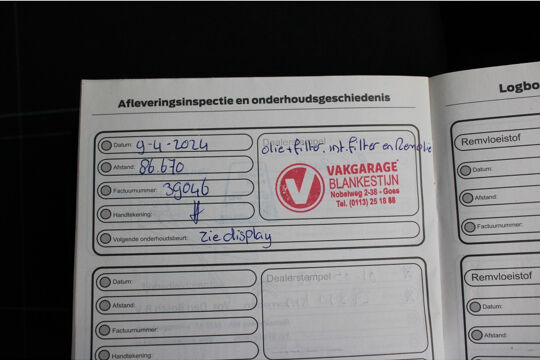 Afleveringsinspectie en onderhoudsgeschiedenis
Datum: 9-4-2024
Afstand: 86.670
Factuurnummer: 39046
Handtekening:
Volgende onderhoudsbeurt: Zie display
Dealerstempel
olie+filter, int. filter en Remolie
VAKGARAGE
BLANKESTIJN
Nobelweg 2-38 - Goes
Tel. (0113) 25 18 88
Datum:
Afstand:
Factuurnummer:
Handtekening:
Dealerstempel
Logbo
Remvloeistof
Datum:
Afstand:
Factuurnummer:
Remvloeistof
Datum:
Afstand: